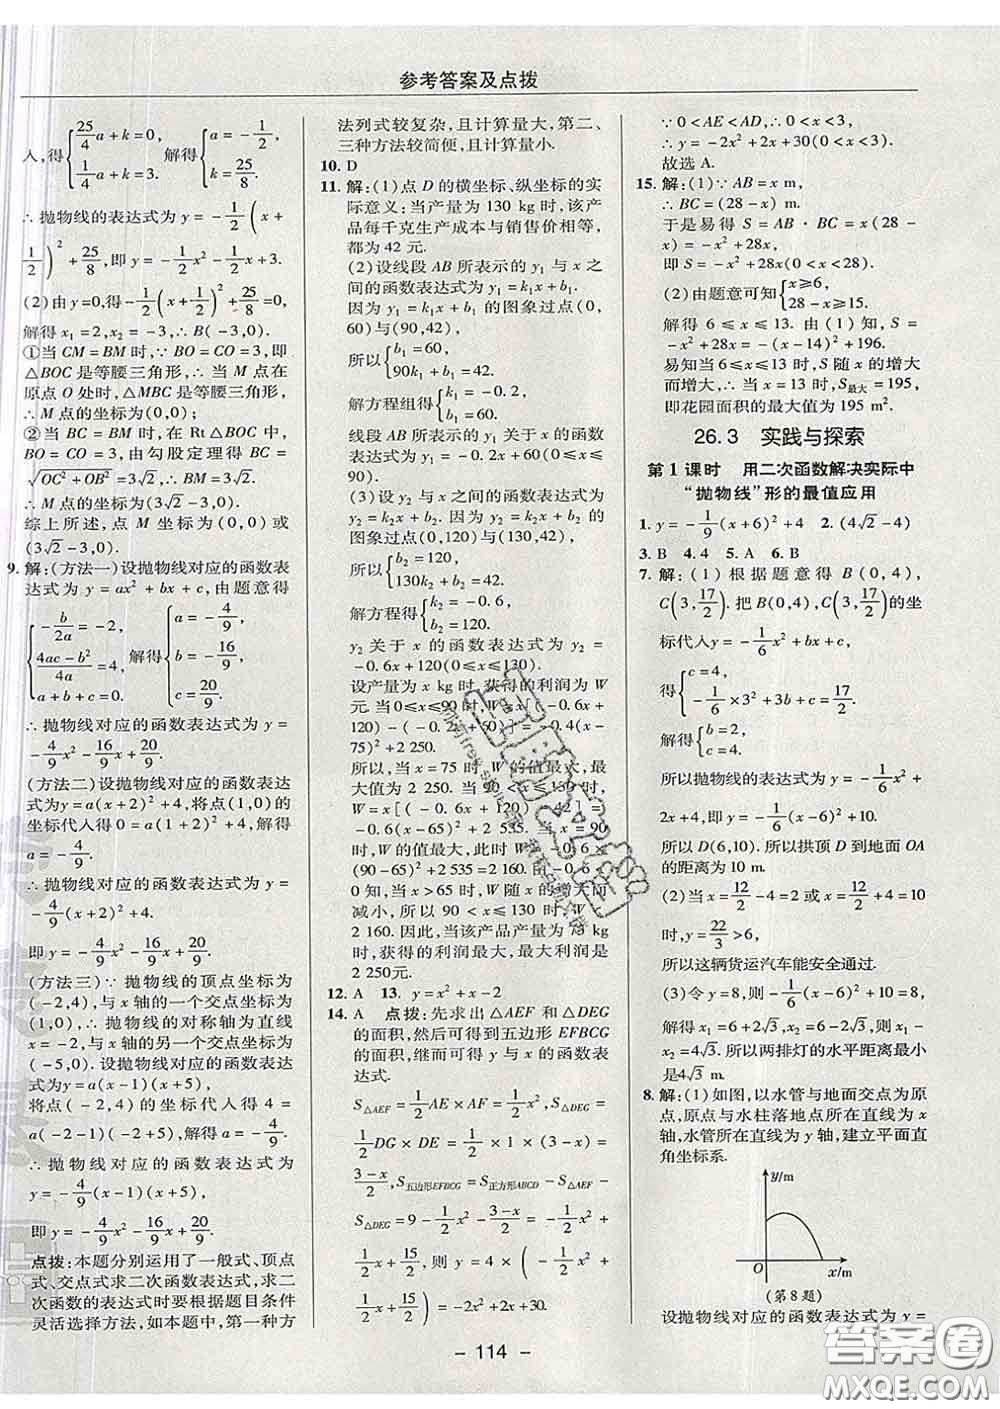 参考答案及点拨
人,得{25/4a+k=0, 1/4a+k=3. 解得{a=-1/2, k=25/8.
∴抛物线的表达式为y=-1/2(x+
1/2)²+25/8,即y=-1/2x²-1/2x+3.
(2)由y=0,得-1/2(x+1/2)²+25/8=0,
解得x₁=2,x₂=-3,∴B(-3,0).
①当CM=BM时,∵BO=CO=3,即
△BOC是等腰三角形,∴当M点在
原点O处时,△MBC是等腰三角形,
∴M点的坐标为(0,0);
②当BC=BM时,在Rt△BOC中,
BO=CO=3,由勾股定理得BC=
√(OC²+OB²)=3√2,∴BM=3√2,
∴M点的坐标为(3√2-3,0).
综上所述,点M坐标为(0,0)或
(3√2-3,0).
9.解:(方法一)设抛物线对应的函数表
达式为y=ax²+bx+c,由题意得
{-b/2a=-2, (4ac-b²)/4a=4, a+b+c=0. 解得{a=-4/9, b=-16/9, c=20/9.
∴抛物线对应的函数表达式为y=
-4/9x²-16/9x+20/9.
(方法二)设抛物线对应的函数表达
式为y=a(x+2)²+4,将点(1,0)的
坐标代入得0=a(1+2)²+4,解得
a=-4/9.
∴抛物线对应的函数表达式为y=
-4/9(x+2)²+4,
即y=-4/9x²-16/9x+20/9.
(方法三)∵抛物线的顶点坐标为
(-2,4),与x轴的一个交点坐标为
(1,0),∴抛物线的对称轴为直线
x=-2,与x轴的另一个交点坐标为
(-5,0).设抛物线对应的函数表达
式为y=a(x-1)(x+5),
将点(-2,4)的坐标代入得4=
a(-2-1)(-2+5),解得a=-4/9.
∴抛物线对应的函数表达式为
y=-4/9(x-1)(x+5),
即y=-4/9x²-16/9x+20/9.
点拨:本题分别运用了一般式、顶点
式、交点式求二次函数表达式,求二
次函数的表达式时要根据题目条件
灵活选择方法,如本题中,第一种方
法列式较复杂,且计算量大,第二、
三种方法较简便,且计算量小.
10.D
11.解:(1)点D的横坐标、纵坐标的实
际意义:当产量为130 kg时,该产
品每千克生产成本与销售价相等,
都为42元.
(2)设线段AB所表示的y₁与x之
间的函数表达式为y₁=k₁x+b₁.
因为y₁=k₁x+b₁的图象过点(0,
60)与(90,42),
所以{b₁=60, 90k₁+b₁=42.
解方程组得{k₁=-0.2, b₁=60.
线段AB所表示的y₁关于x的函数
表达式为y₁=-0.2x+60(0≤x≤90).
(3)设y₂与x之间的函数表达式为
y₂=k₂x+b₂.因为y₂=k₂x+b₂的
图象过点(0,120)与(130,42),
所以{b₂=120, 130k₂+b₂=42.
解方程得{k₂=-0.6, b₂=120.
y₂关于x的函数表达式为y₂=
-0.6x+120(0≤x≤130).
设产量为x kg时,获得的利润为W
元.当0≤x≤90时,W=x[(-0.6x+
120)-(-0.2x+60)]=-0.4(x-
75)²+2 250.
所以,当x=75时,W的值最大,最
大值为2 250.当90≤x≤130时,
W=x[(-0.6x+120)-42]=
-0.6(x-65)²+2 535.当x=90
时,W的值最大,此时W=-0.6×
(90-65)²+2 535=2 160.由-0.6<
0知,当x>65时,W随x的增大而
减小,所以90<x≤130时,W<
2 160.因此,当该产品产量为75 kg
时,获得的利润最大,最大利润是
2 250元.
12.A 13.y=x²+x-2
14.A 点拨:先求出△AEF和△DEG
的面积,然后可得到五边形EFBCG
的面积,继而可得y与x的函数表
达式.
S△AEF=1/2AE×AF=1/2x²,S△DEG=
1/2DG×DE=1/2×1×(3-x)=
(3-x)/2,S五边形EFBCG=S正方形ABCD-S△AEF-
S△DEG=9-1/2x²-(3-x)/2=-1/2x²+
1/2x+15/2,则y=4×(-1/2x²+
1/2x+15/2)=-2x²+2x+30.
∵0<AE<AD,∴0<x<3,
∴y=-2x²+2x+30(0<x<3).
故选A.
15.解:(1)∵AB=x m,
∴BC=(28-x)m.
于是易得S=AB·BC=x(28-
x)=-x²+28x,
即S=-x²+28x(0<x<28).
(2)由题意可知{x≥6, 28-x≥15.
解得6≤x≤13.由(1)知,S=
-x²+28x=-(x-14)²+196.
易知当6≤x≤13时,S随x的增大
而增大,∴当x=13时,S最大=195,
即花园面积的最大值为195 m².
26.3 实践与探索
第1课时 用二次函数解决实际中
“抛物线”形的最值应用
1.y=-1/9(x+6)²+4 2.(4√2-4)
3.B 4.4 5.A 6.B
7.解:(1)根据题意得B(0,4),
C(3,17/2).把B(0,4),C(3,17/2)的坐
标代入y=-1/6x²+bx+c,
得{c=4, -1/6×3²+3b+c=17/2.
解得{b=2, c=4.
所以抛物线的表达式为y=-1/6x²+
2x+4,即y=-1/6(x-6)²+10.
所以D(6,10).所以拱顶D到地面OA
的距离为10 m.
(2)当x=12/2-4=2或x=12/2+4=10
时,y=22/3>6,
所以这辆货运汽车能安全通过.
(3)令y=8,则-1/6(x-6)²+10=8,
解得x₁=6+2√3,x₂=6-2√3,则
x₁-x₂=4√3.所以两排灯的水平距离最小
是4√3 m.
8.解:(1)如图,以水管与地面交点为原
点,原点与水柱落地点所在直线为x
轴,水管所在直线为y轴,建立平面直
角坐标系.
y/m
O x/m
(第8题)
设抛物线对应的函数表达式为y=
- 114 -
答案圈
MXQE.COM